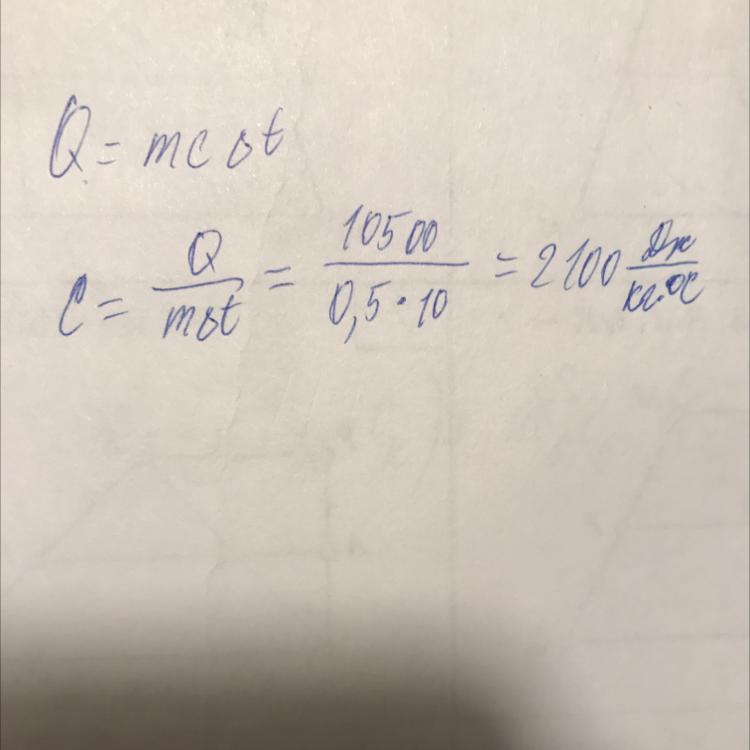 Q = mcΔt
c = Q/mΔt = 10500/0,5·10 = 2100 Дж/кг·°C